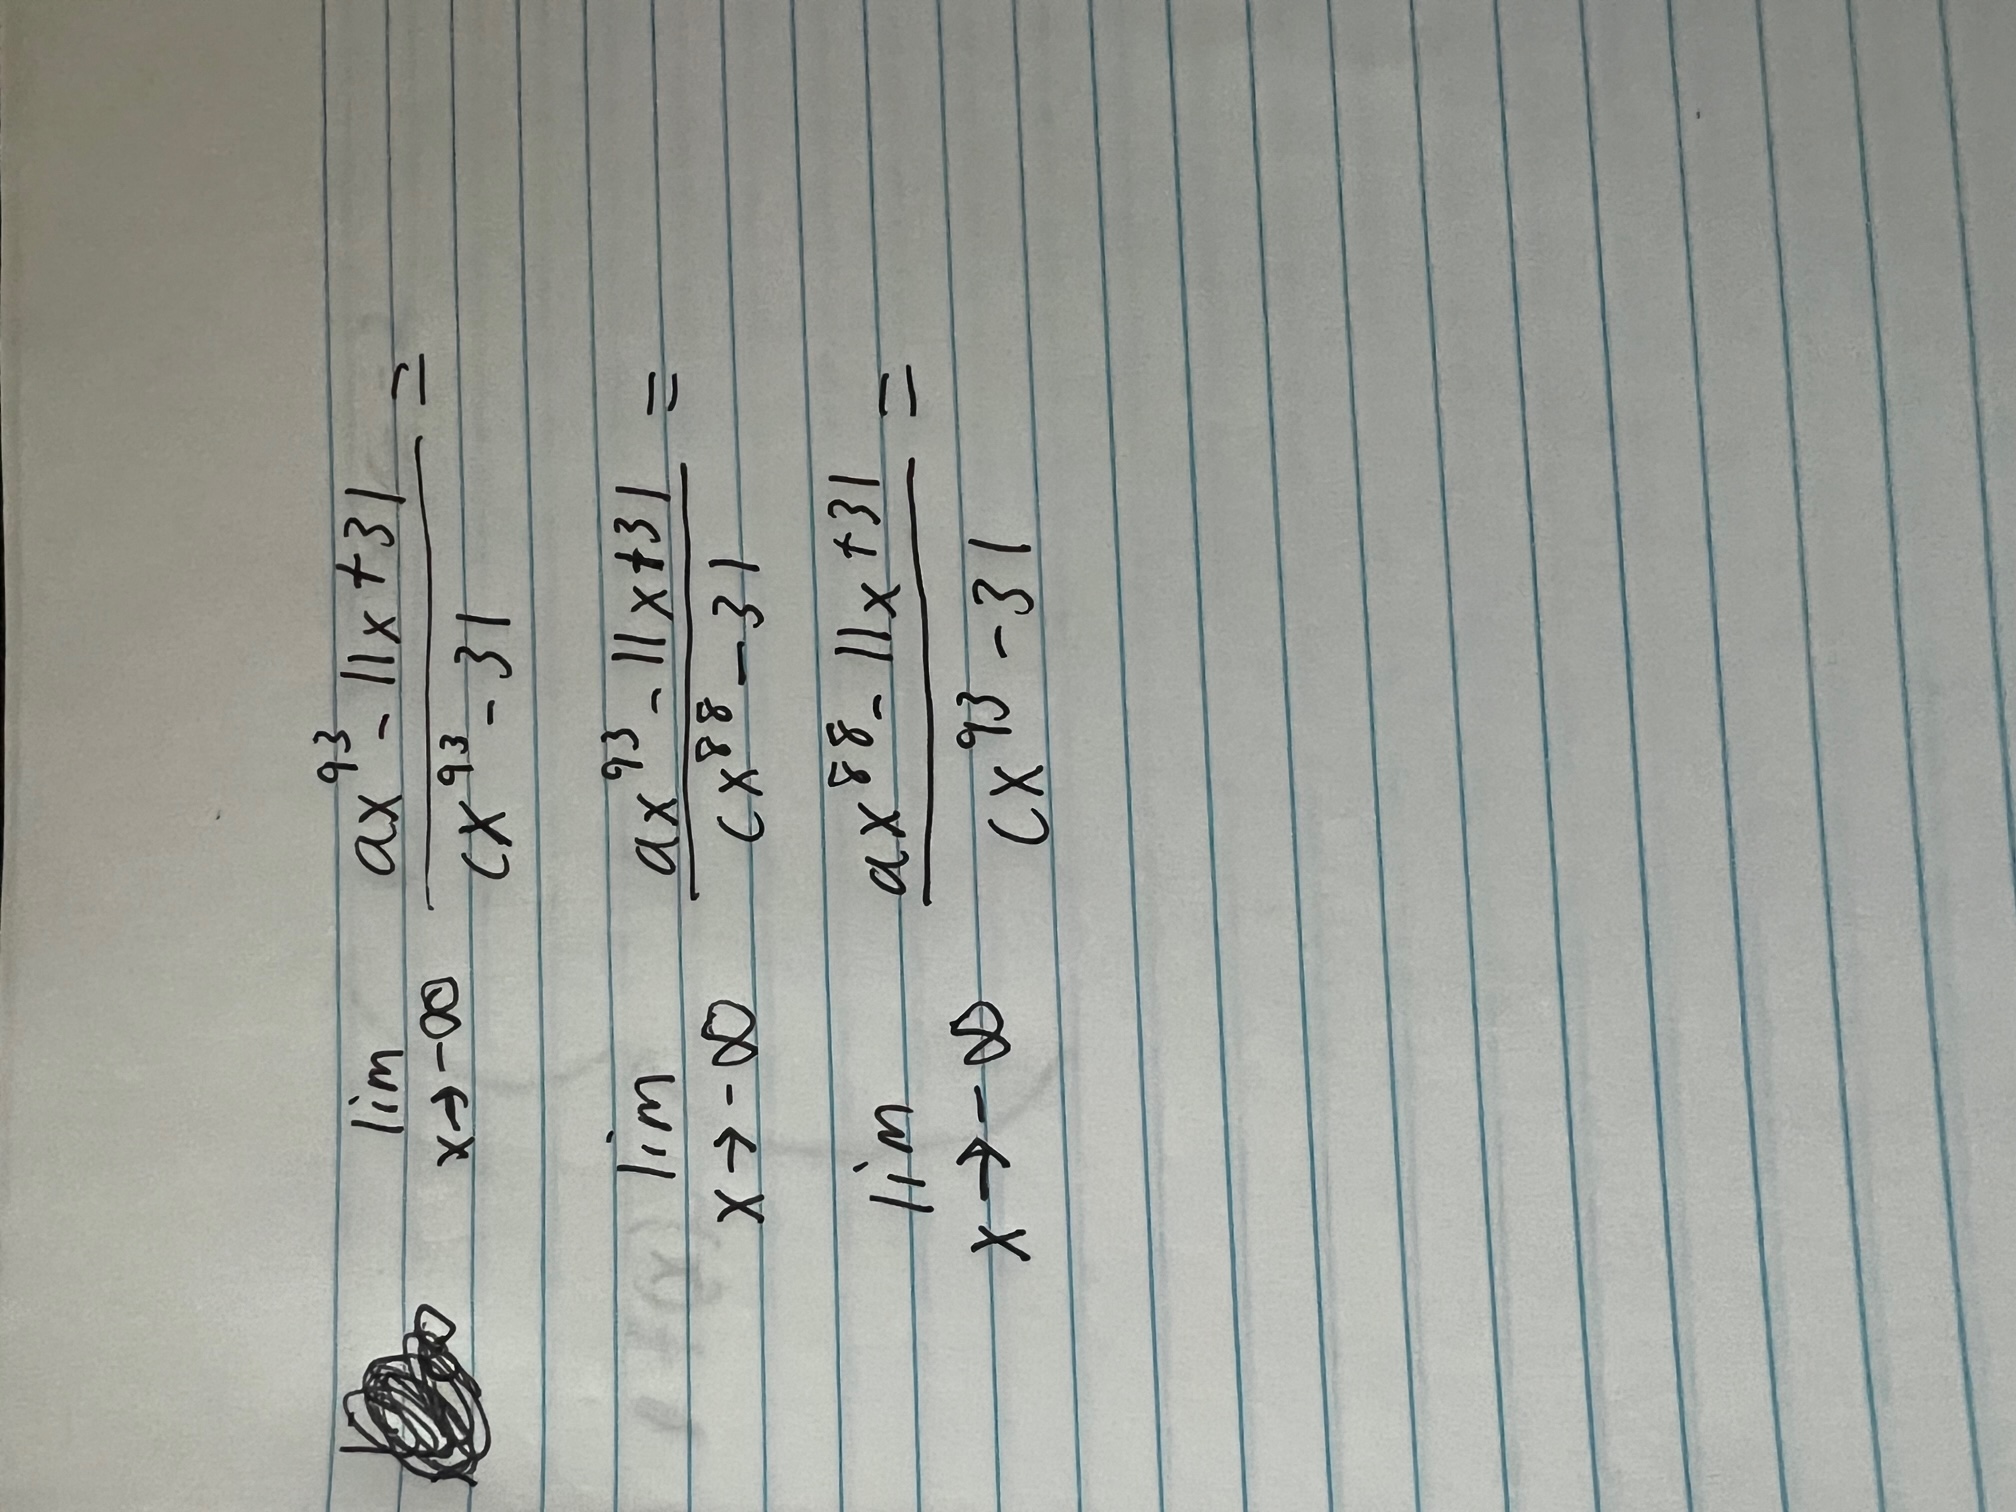 lim ax^93 - 11x + 31 =
x→-∞ cx^93 - 31
lim ax^93 - 11x + 31 =
x→-∞ cx^88 - 31
lim ax^88 - 11x + 31 =
x→-∞ cx^93 - 31